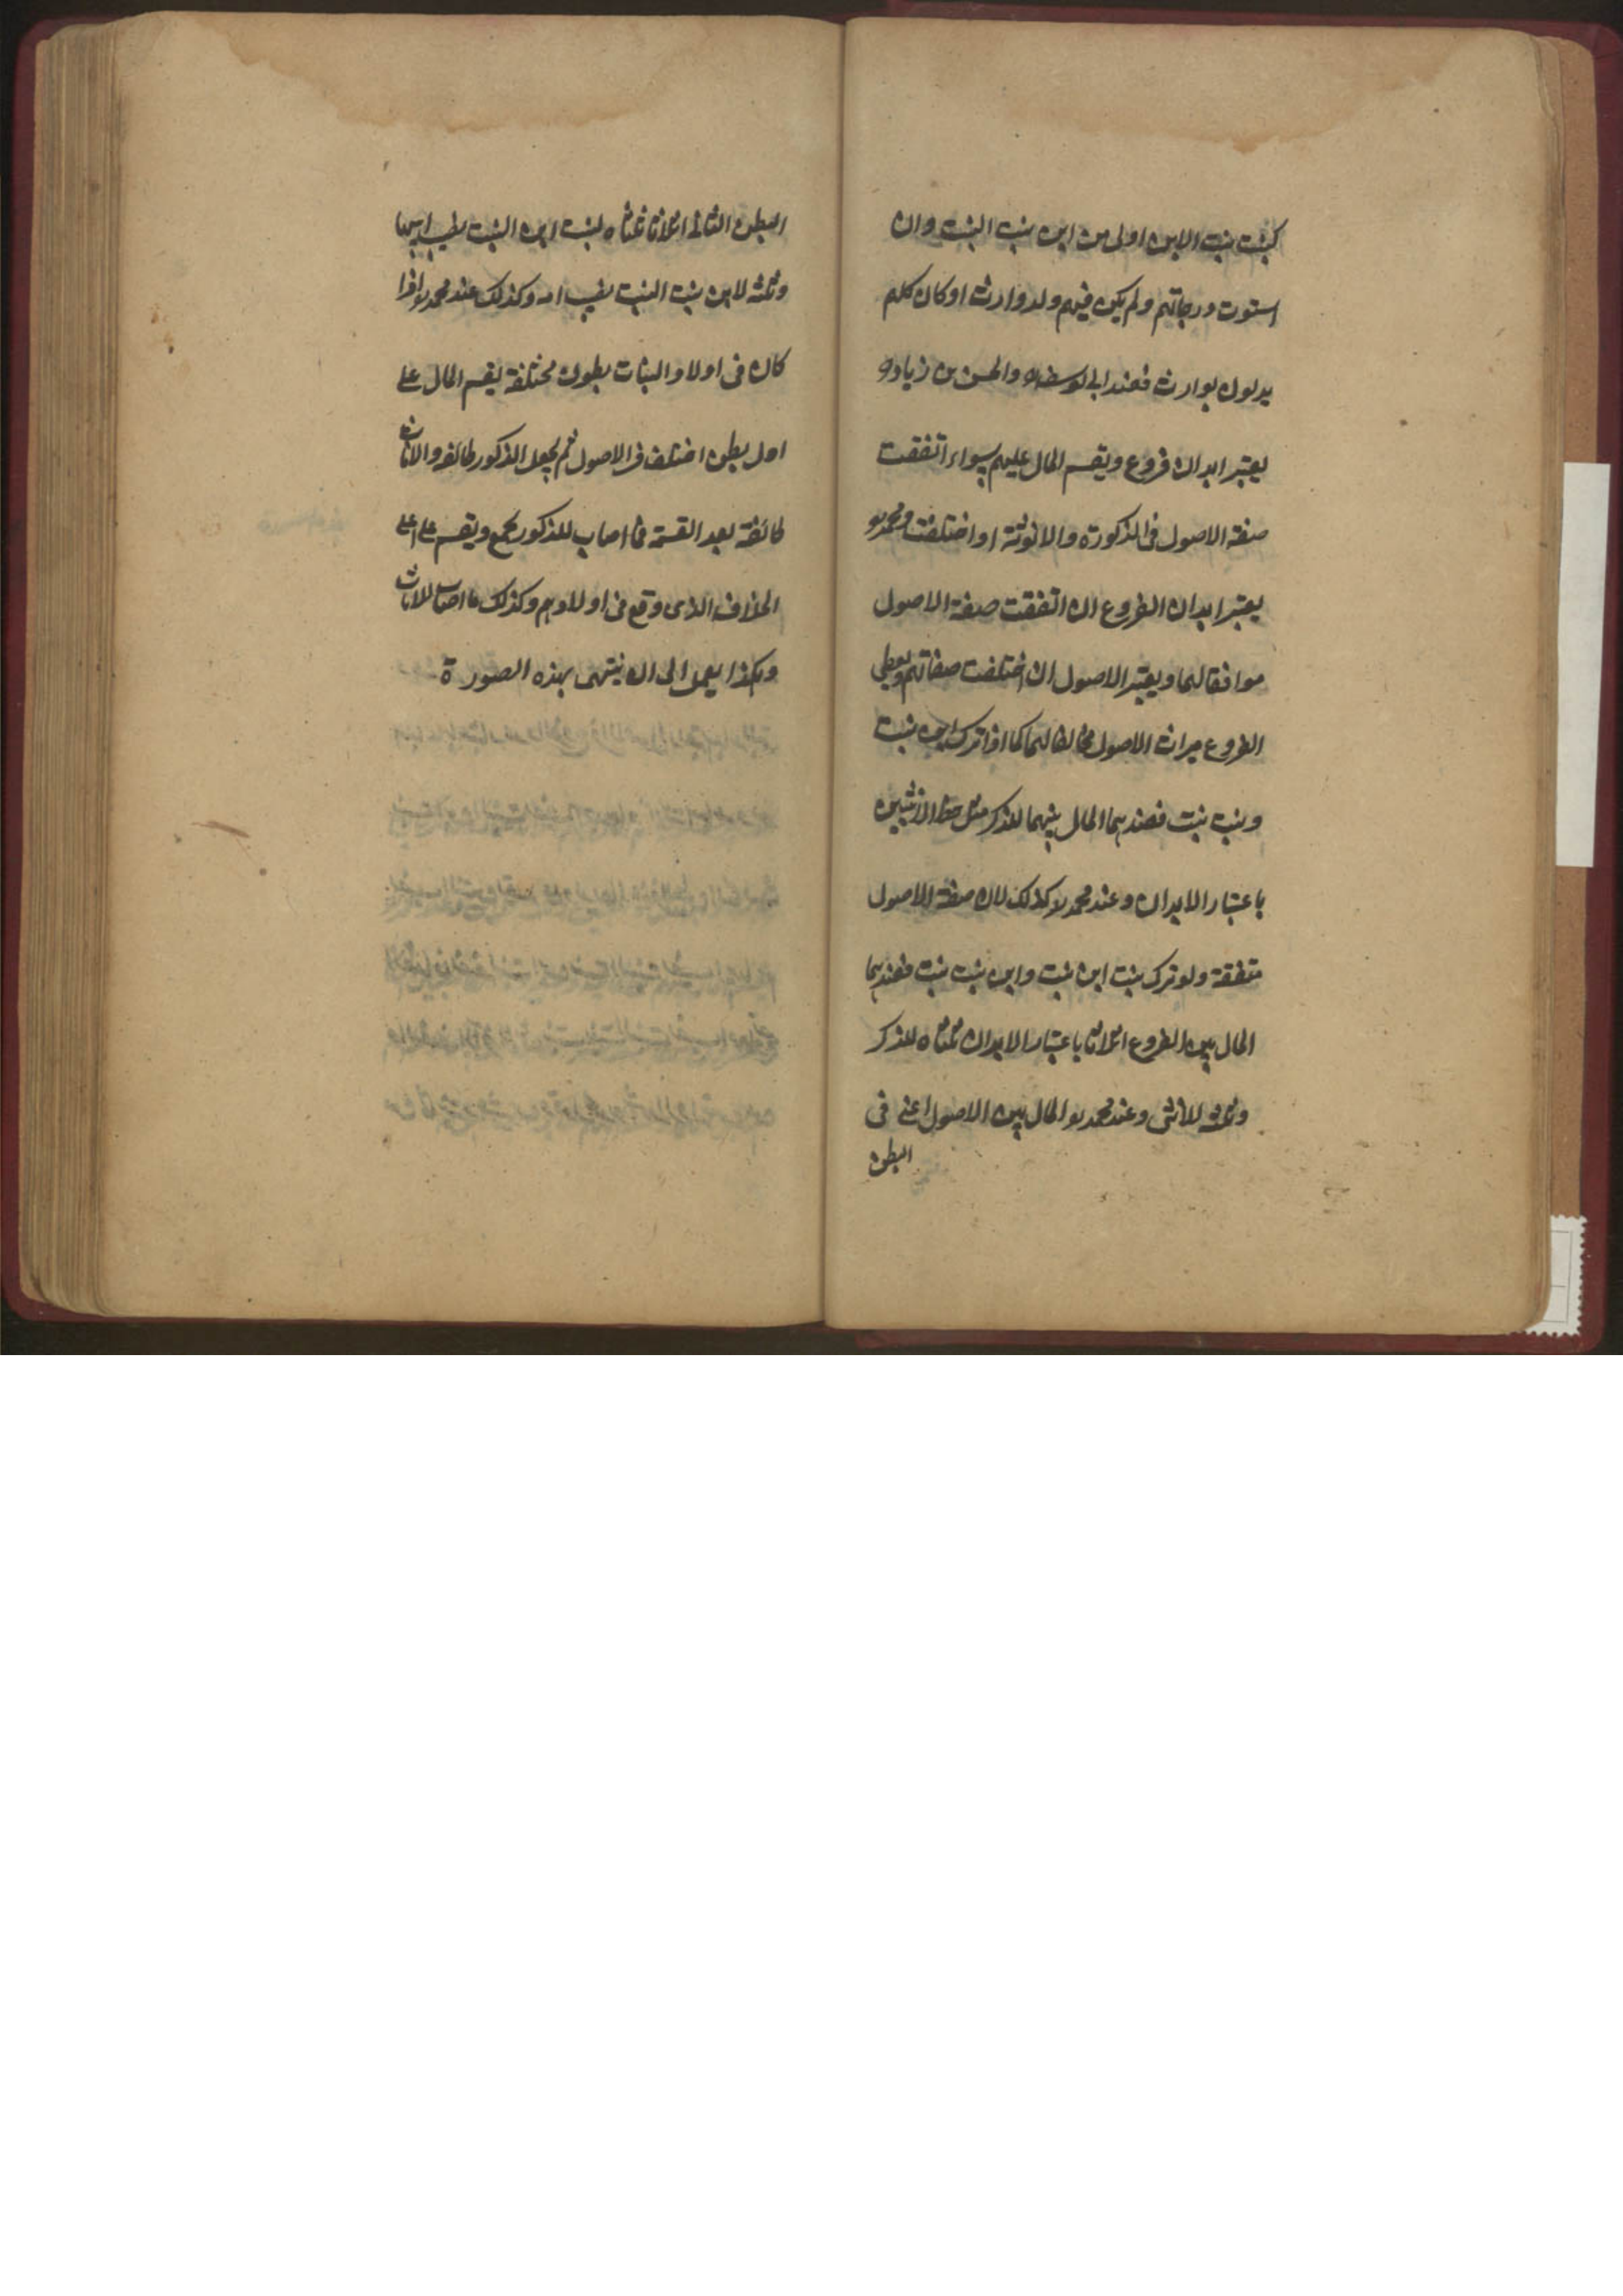 كبنت بنت الابن اولى من ابن بنت البنت وان
استوت درجاتهم ولم يكن فيهم ولد وارث او كان كلهم
يدلون بوارث فعند ابى يوسف والحسن بن زياد
يعتبر ابدان فروع ويقسم المال عليهم سواء اتفقت
صفة الاصول فى الذكورة والانوثة او اختلفت ومحمد
يعتبر ابدان الفروع ان اتفقت صفة الاصول
موافقا لهما ويعتبر الاصول ان اختلفت صفاتهم ويعطى
الفروع ميراث الاصول مخالفا لهما كما اذا ترك ابن بنت
وبنت بنت فعندهما المال بينهما للذكر مثل حظ الانثيين
باعتبار الابدان وعند محمد كذلك لان صفة الاصول
متفقة ولو ترك بنت ابن بنت وابن بنت بنت فعندهما
المال بين الفروع اثلاثا باعتبار الابدان ثلثاه للذكر
وثلثه للانثى وعند محمد المال بين الاصول اعنى فى
البطن
البطن الثانى اثلاثا ثلثاه لبنت ابن البنت نصيب ابيها
وثلثه لابن بنت البنت نصيب امه وكذلك عند محمد اذا
كان فى اولاد البنات بطون مختلفة يقسم المال على
اول بطن اختلف فى الاصول ثم يجعل الذكور طائفة والاناث
طائفة بعد القسمة فما اصاب للذكور يجمع ويقسم على اعلى
الخلاف الذى وقع فى اولادهم وكذلك ما اصاب للاناث
وهكذا يعمل الى ان ينتهى بهذه الصورة